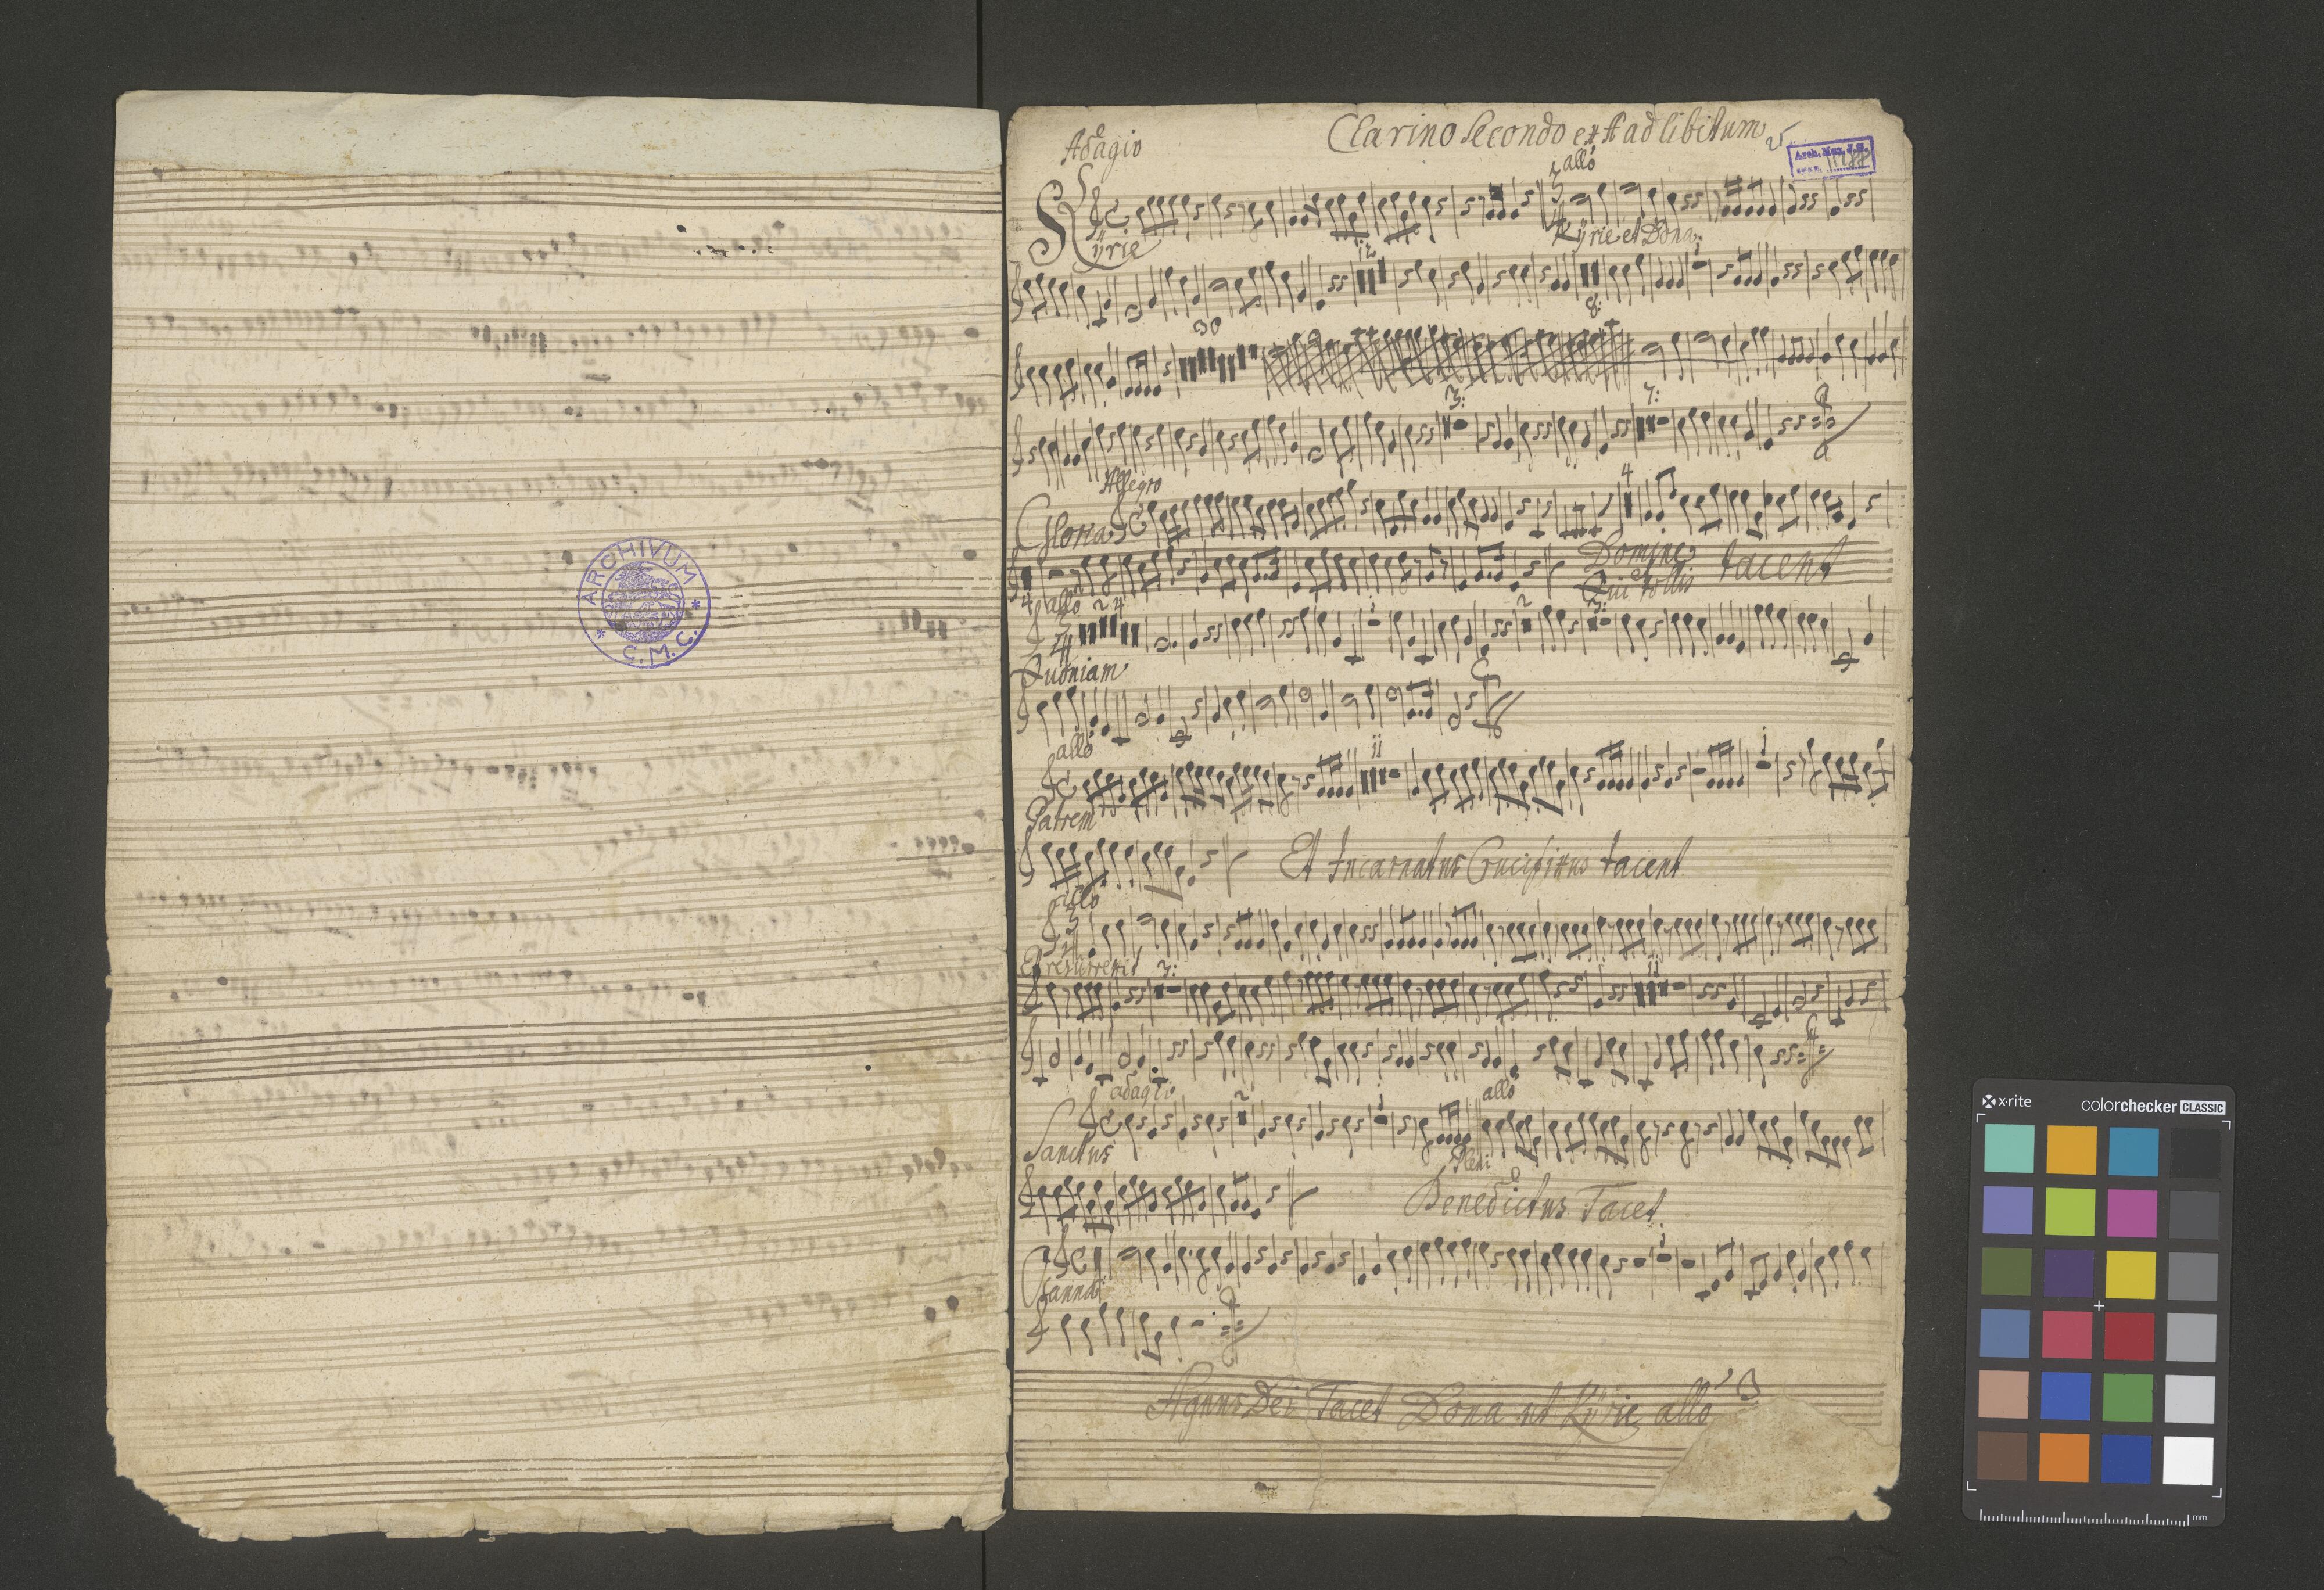 ARCHIVUM
C. M. C.
Clarino Secondo est ad libitum
Adagio
allo
Kÿrie
Kÿrie et Dona
12
8:
30
3:
7:
Allegro
Gloria
4
Domine
Qui tollis
tacent
4
allo
24
3
4
i
2
3:
Quoniam
allo
ii
i
Patrem
Et Incarnatus Crucifixus tacent
allo
3
4
Et resurrexit
7:
ii
adagio
2
i
allo
Sanctus
Pleni
Benedictus Tacet
i
Osanna
Agnus Dei Tacet Dona ut Kÿrie allo
x-rite
colorchecker CLASSIC
mm